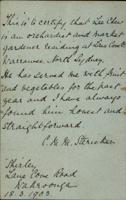 This is to certify that Lee Chu
is an orchardist and market
gardener residing at Lane Cove
Warrawee, North Sydney.
He has served me with fruit
and vegetables for the past
year and I have always
found him honest and
straightforward
Shirley
Lane Cove Road
Wahroonga
18.3.1902